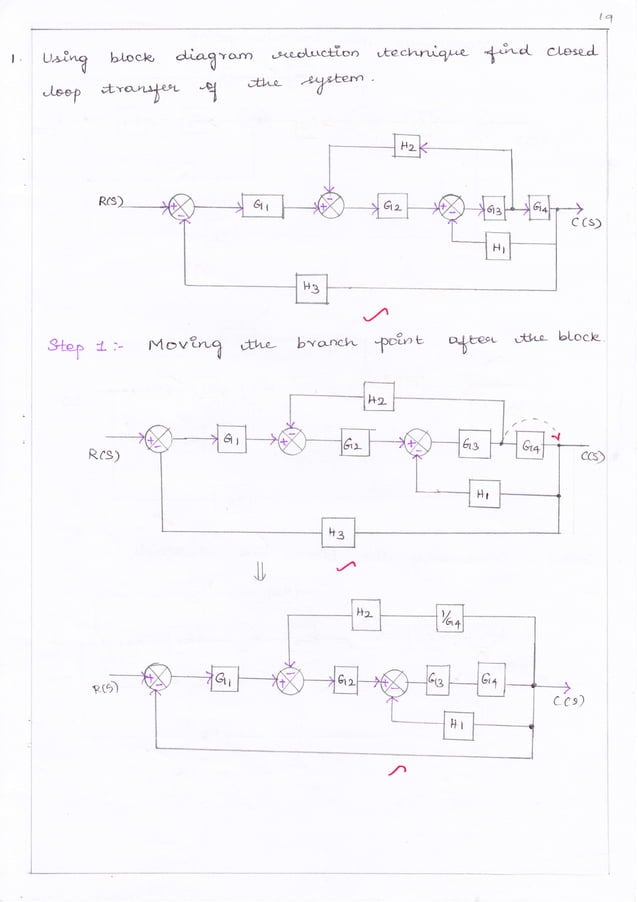 19
1. Using block diagram reduction technique find closed
loop transfer of the system.
H2
R(S) + - G1 + - G2 + - G3 G4 C(S)
H1
H3
Step 1 :- Moving the branch point after the block.
H2
R(S) + - G1 + - G2 + - G3 G4 C(S)
H1
H3
⇓
H2 1/G4
R(S) + - G1 + - G2 + - G3 G4 C(S)
H1